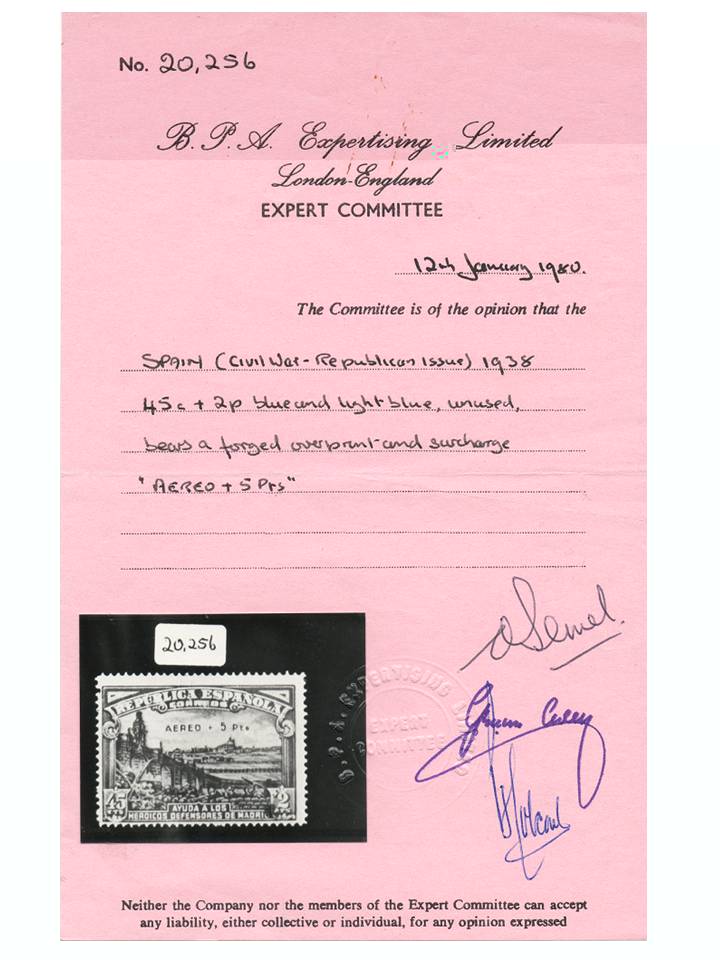 No. 20,256
B. P. A. Expertising Limited
London-England
EXPERT COMMITTEE
12th January 1980.
The Committee is of the opinion that the
SPAIN (Civil War - Republican Issue) 1938
45c + 2p blue and light blue, unused,
bears a forged overprint and surcharge
"AEREO + 5 Pts"
20,256
REPUBLICA ESPAÑOLA
CORREOS
AEREO + 5 Pts
45 2
AYUDA A LOS
HEROICOS DEFENSORES DE MADRID
B.P.A. EXPERTISING
EXPERT
COMMITTEE
Neither the Company nor the members of the Expert Committee can accept
any liability, either collective or individual, for any opinion expressed